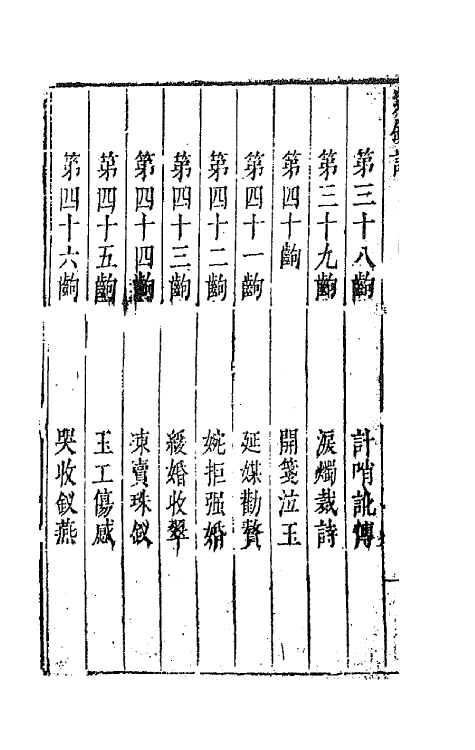 第三十八齣　計哨訛傳
第三十九齣　淚燭裁詩
第四十齣　開箋泣玉
第四十一齣　延媒勸贅
第四十二齣　婉拒强婚
第四十三齣　緩婚收翠
第四十四齣　凍賣珠釵
第四十五齣　玉工傷感
第四十六齣　哭收釵燕